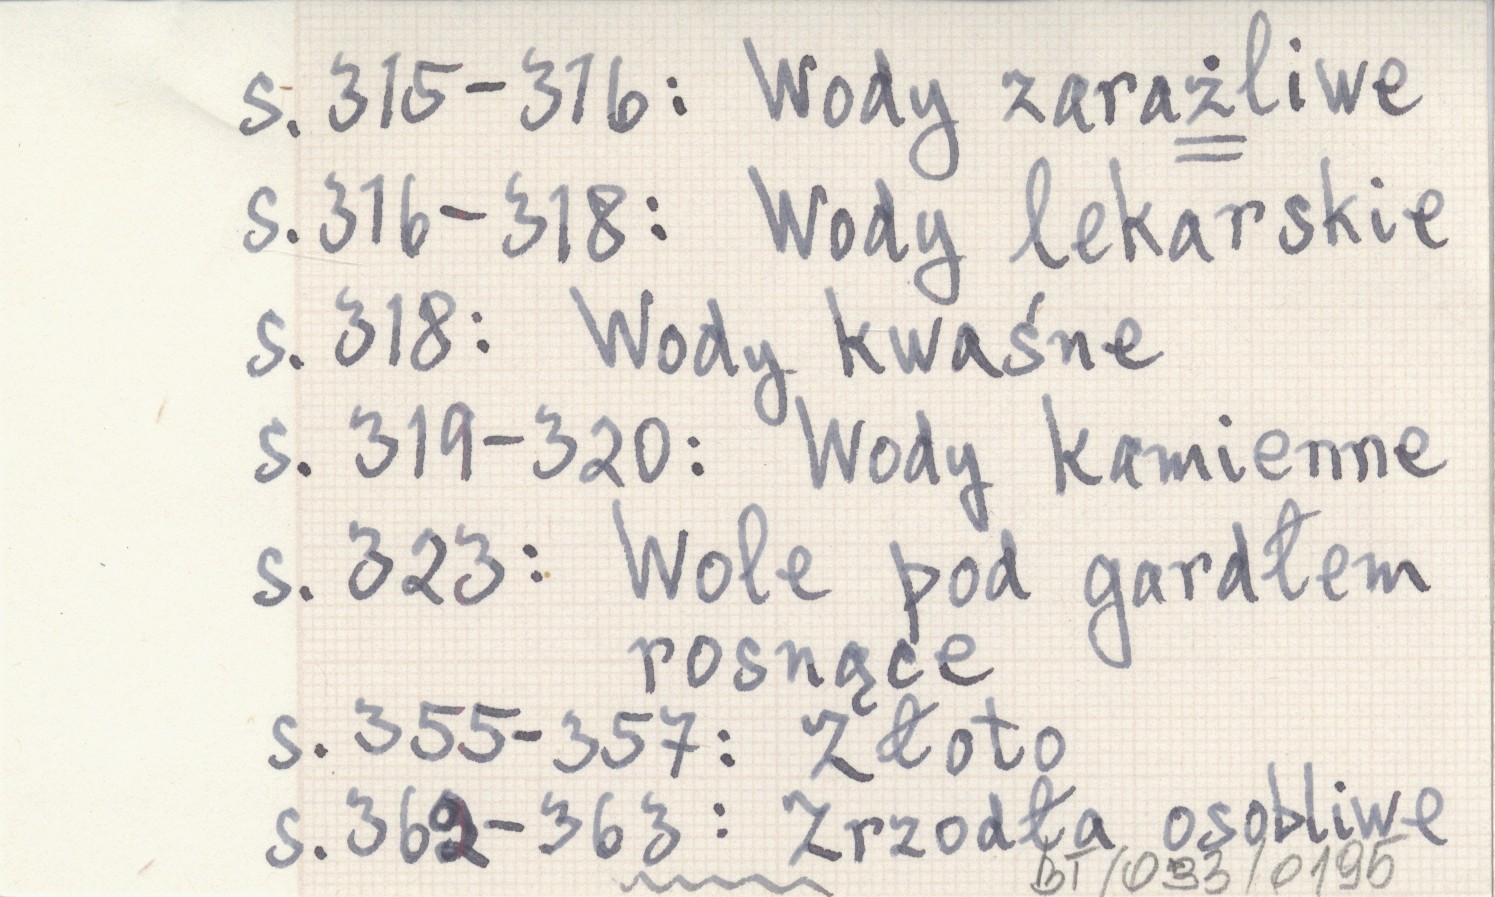 s. 315-316: Wody zaraźliwe
s. 316-318: Wody lekarskie
s. 318: Wody kwaśne
s. 319-320: Wody kamienne
s. 323: Wole pod gardłem
rosnące
s. 355-357: Złoto
s. 362-363: Zrzodła osobliwe
BT/033/0195